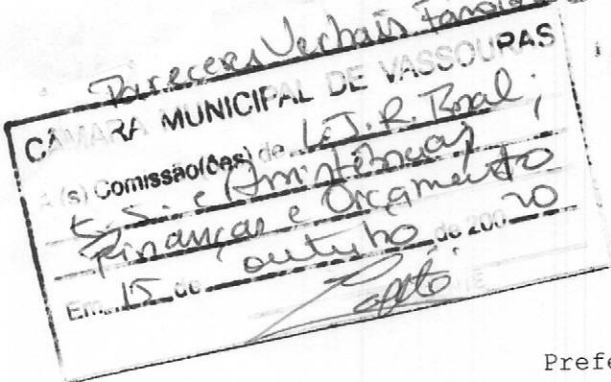 Pareceres Verbais Favorá
CÂMARA MUNICIPAL DE VASSOURAS
(s) Comissão(ões) de L.J.R. Final;
E.S. e Assistência;
Finanças e Orçamento
Em 15 de outubro de 200 20
Prefe